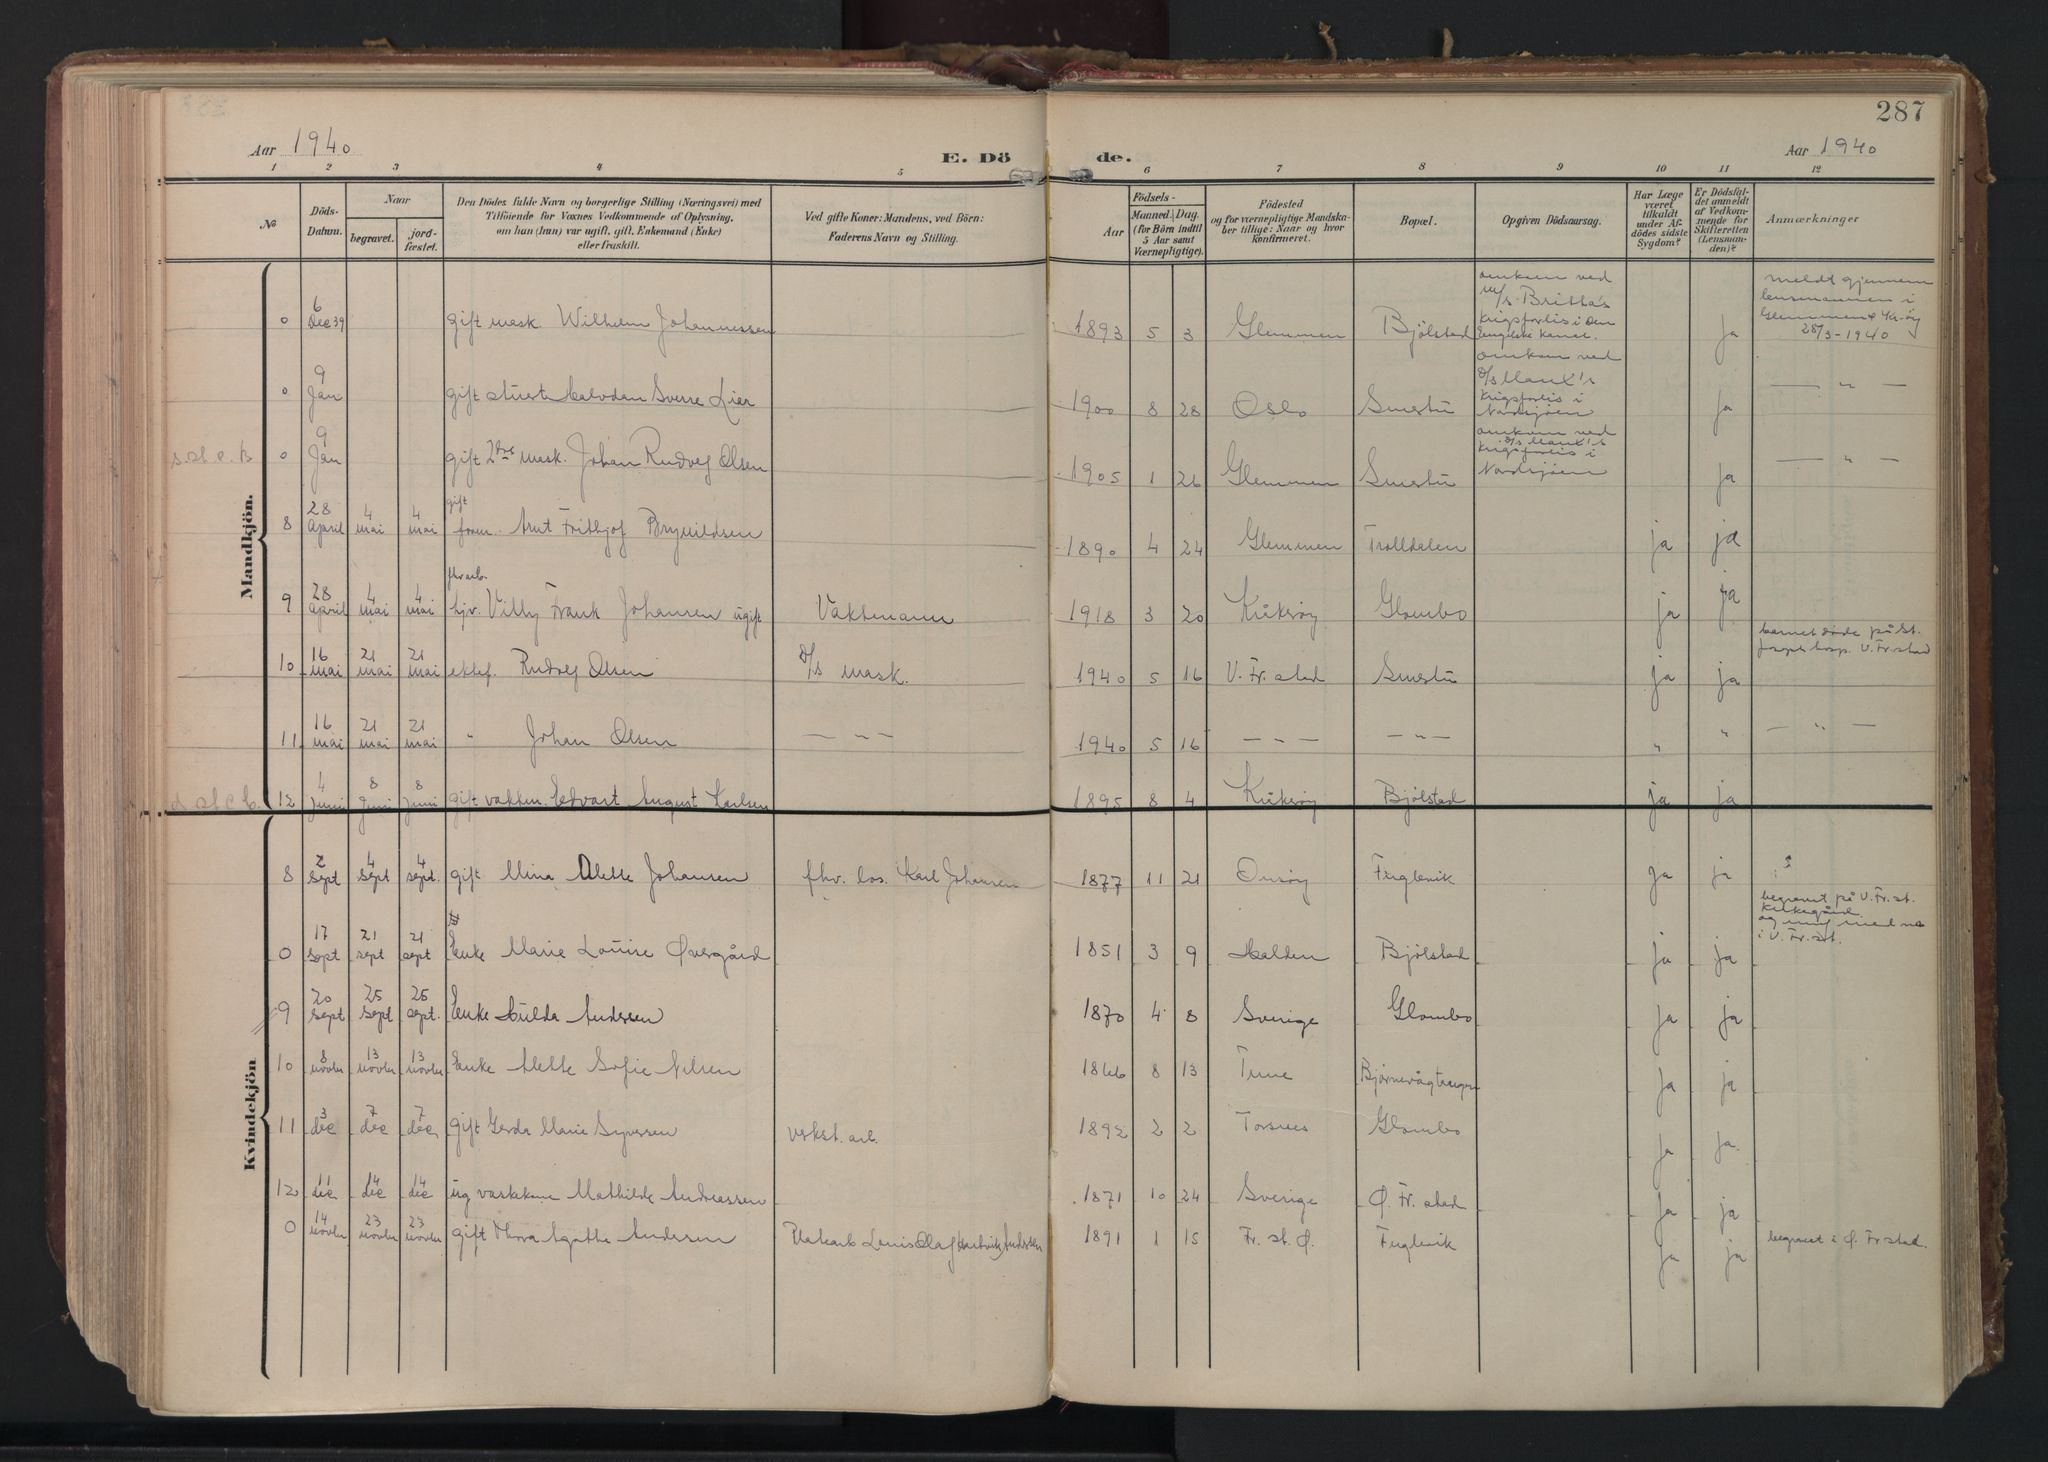 287
Aar 1940
E. Dö
de.
Aar 1940
1 2 3 4 5 6 7 8 9 10 11 12
No
Döds-
Datum.
Naar
begravet.
jord-
fæstet.
Den Dödes fulde Navn og borgerlige Stilling (Næringsvei) med
Tilföiende for Voxnes Vedkommende af Oplysning,
om han (hun) var ugift, gift, Enkemand (Enke)
eller fraskilt.
Ved gifte Koner: Mandens, ved Börn:
Faderens Navn og Stilling.
Födsels-
Aar
Maaned. Dag.
(for Börn indtil
5 Aar samt
Værnepligtige).
Födested
og for værnepligtige Mandska-
ber tillige: Naar og hvor
konfirmeret.
Bopæl.
Opgiven Dödsaarsag.
Har Læge
været
tilkaldt
under Af-
dödes sidste
Sygdom?
Er Dödsfal-
det anmeldt
af Vedkom-
mende for
Skifteretten
(Lensman-
den)?
Anmærkninger
Mandkjön.
0 6 Dec 39 gift mask. Wilhelm Johannessen 1893 5 3 Glemmen Bjölstad
omkom ved
m/s Britta's
krigsforlis i den
Engelske kanal.
ja
meldt gjennem
lensmannen i
Glemmen & Kr.öy
28/3-1940
0 9 Jan gift stuert Halvdan Sverre Lier 1900 8 28 Oslo Smertu
omkom ved
krigsforlis i
Nordsjöen
ja — " —
s.st.e.b. 0 9 Jan gift 2den mask. Johan Rudolf Olsen 1905 1 26 Glemmen Smertu
omkom ved
krigsforlis i
Nordsjöen
ja — " —
8 28 April 4 mai 4 mai gift
form. Arnt Frithjof Brynildsen 1890 4 24 Glemmen Trolldalen ja ja
9 28 April 4 mai 4 mai fhv arb.
hjv. Villy Frank Johansen ugift Vaktmann 1918 3 20 Kråkröy Glombo ja ja
10 16 mai 21 mai 21 mai ektef. Rudolf Olsen D/s mask. 1940 5 16 V. Fr.stad Smertu ja ja
barnet döde på St.
Josephs hosp. V. Fr.stad
11 16 mai 21 mai 21 mai " Johan Olsen — " — 1940 5 16 — " — — " — " " — " —
s.st.e.b. 12 4 Juni 8 Juni 8 Juni gift vaktm. Edvart August Karlsen 1895 8 4 Kråkröy Bjölstad ja ja
Kvindekjön
8 2 sept 4 sept 4 sept. gift Mina Alette Johansen fhv. los. Karl Johansen 1877 11 21 Onsöy Fuglevik ja ja
0 17 sept 21 sept 21 sept Enke Marie Louise Øvergård 1851 3 9 Halden Bjölstad ja ja
begravet på V. Fr. st.
Kirkegård
i V. Fr. st.
9 20 sept 25 sept 25 sept. Enke Hulda Andersen 1870 4 8 Sverige Glombo ja ja
10 8 novbr 13 novbr 13 novbr Enke Alette Sofie Nilsen 1866 8 13 Tune Bjørnevågtangen ja ja
11 3 dec 7 dec 7 dec gift Gerda Marie Syversen verkst. arb. 1892 2 2 Torsnes Glombo ja ja
12 11 dec 14 dec 14 dec ug vaskekone Mathilde Andreassen 1871 10 24 Sverige Ø. Fr.stad ja ja
0 14 novbr 23 novbr 23 novbr gift Thora Agathe Andersen Platearb Louis Olaf Hartvik Andersen 1891 1 15 Fr. st. Ø. Fuglevik ja ja begravet i Ø. Fr.stad.